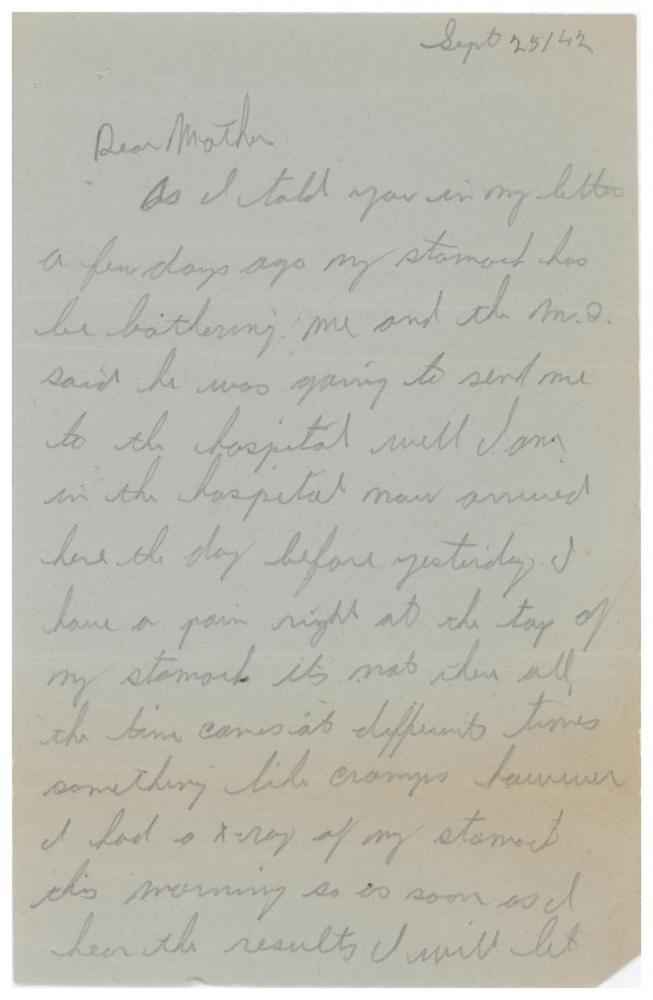 Sept 25/42
Dear Mother
As I told you in my letter
a few days ago my stomach has
be bothering me and the M.O.
said he was going to send me
to the hospital well I am
in the hospital now arrived
here the day before yesterday. I
have a pain right at the top of
my stomach its not there all
the time comes at different times
something like cramps however
I had a x-ray of my stomach
this morning so as soon as I
hear the results I will let